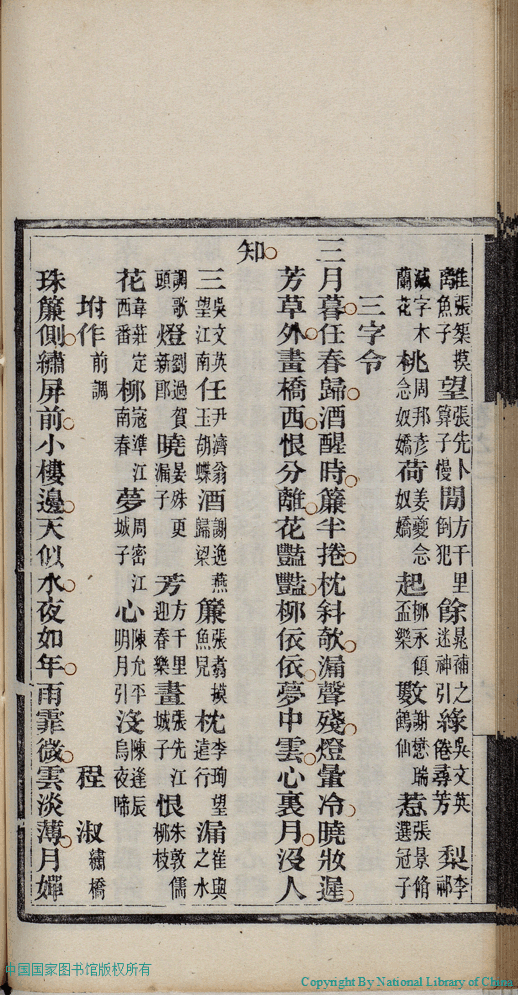 離張榘摸魚子 望張先卜算子慢 閒方千里倒犯 餘晁補之迷神引 緣吳文英倦尋芳 梨李祁
減字木蘭花 桃周邦彥念奴嬌 荷姜夔念奴嬌 起柳永傾盃樂 數謝懋瑞鶴仙 惹張景脩選冠子
三字令
三月暮任春歸酒醒時簾半捲枕斜欹漏聲殘燈暈冷曉妝遲
芳草外畫橋西恨分離花豔豔柳依依夢中雲心裏月沒人
知
三吳文英望江南 任尹濟翁玉胡蝶 酒謝逸燕歸梁 簾張翥摸魚兒 枕李珣望遠行 漏崔與之水
調歌頭 燈劉過賀新郎 曉晏殊更漏子 芳方千里迎春樂 畫張先江城子 恨朱敦儒柳枝
花韋莊定西番 柳寇準江南春 夢周密江城子 心陳允平明月引 沒陳逢辰烏夜啼
坿作前調 程淑繡橋
珠簾側繡屏前小樓邊天似水夜如年雨霏微雲淡薄月嬋
中国国家图书馆版权所有
Copyright By National Library of China